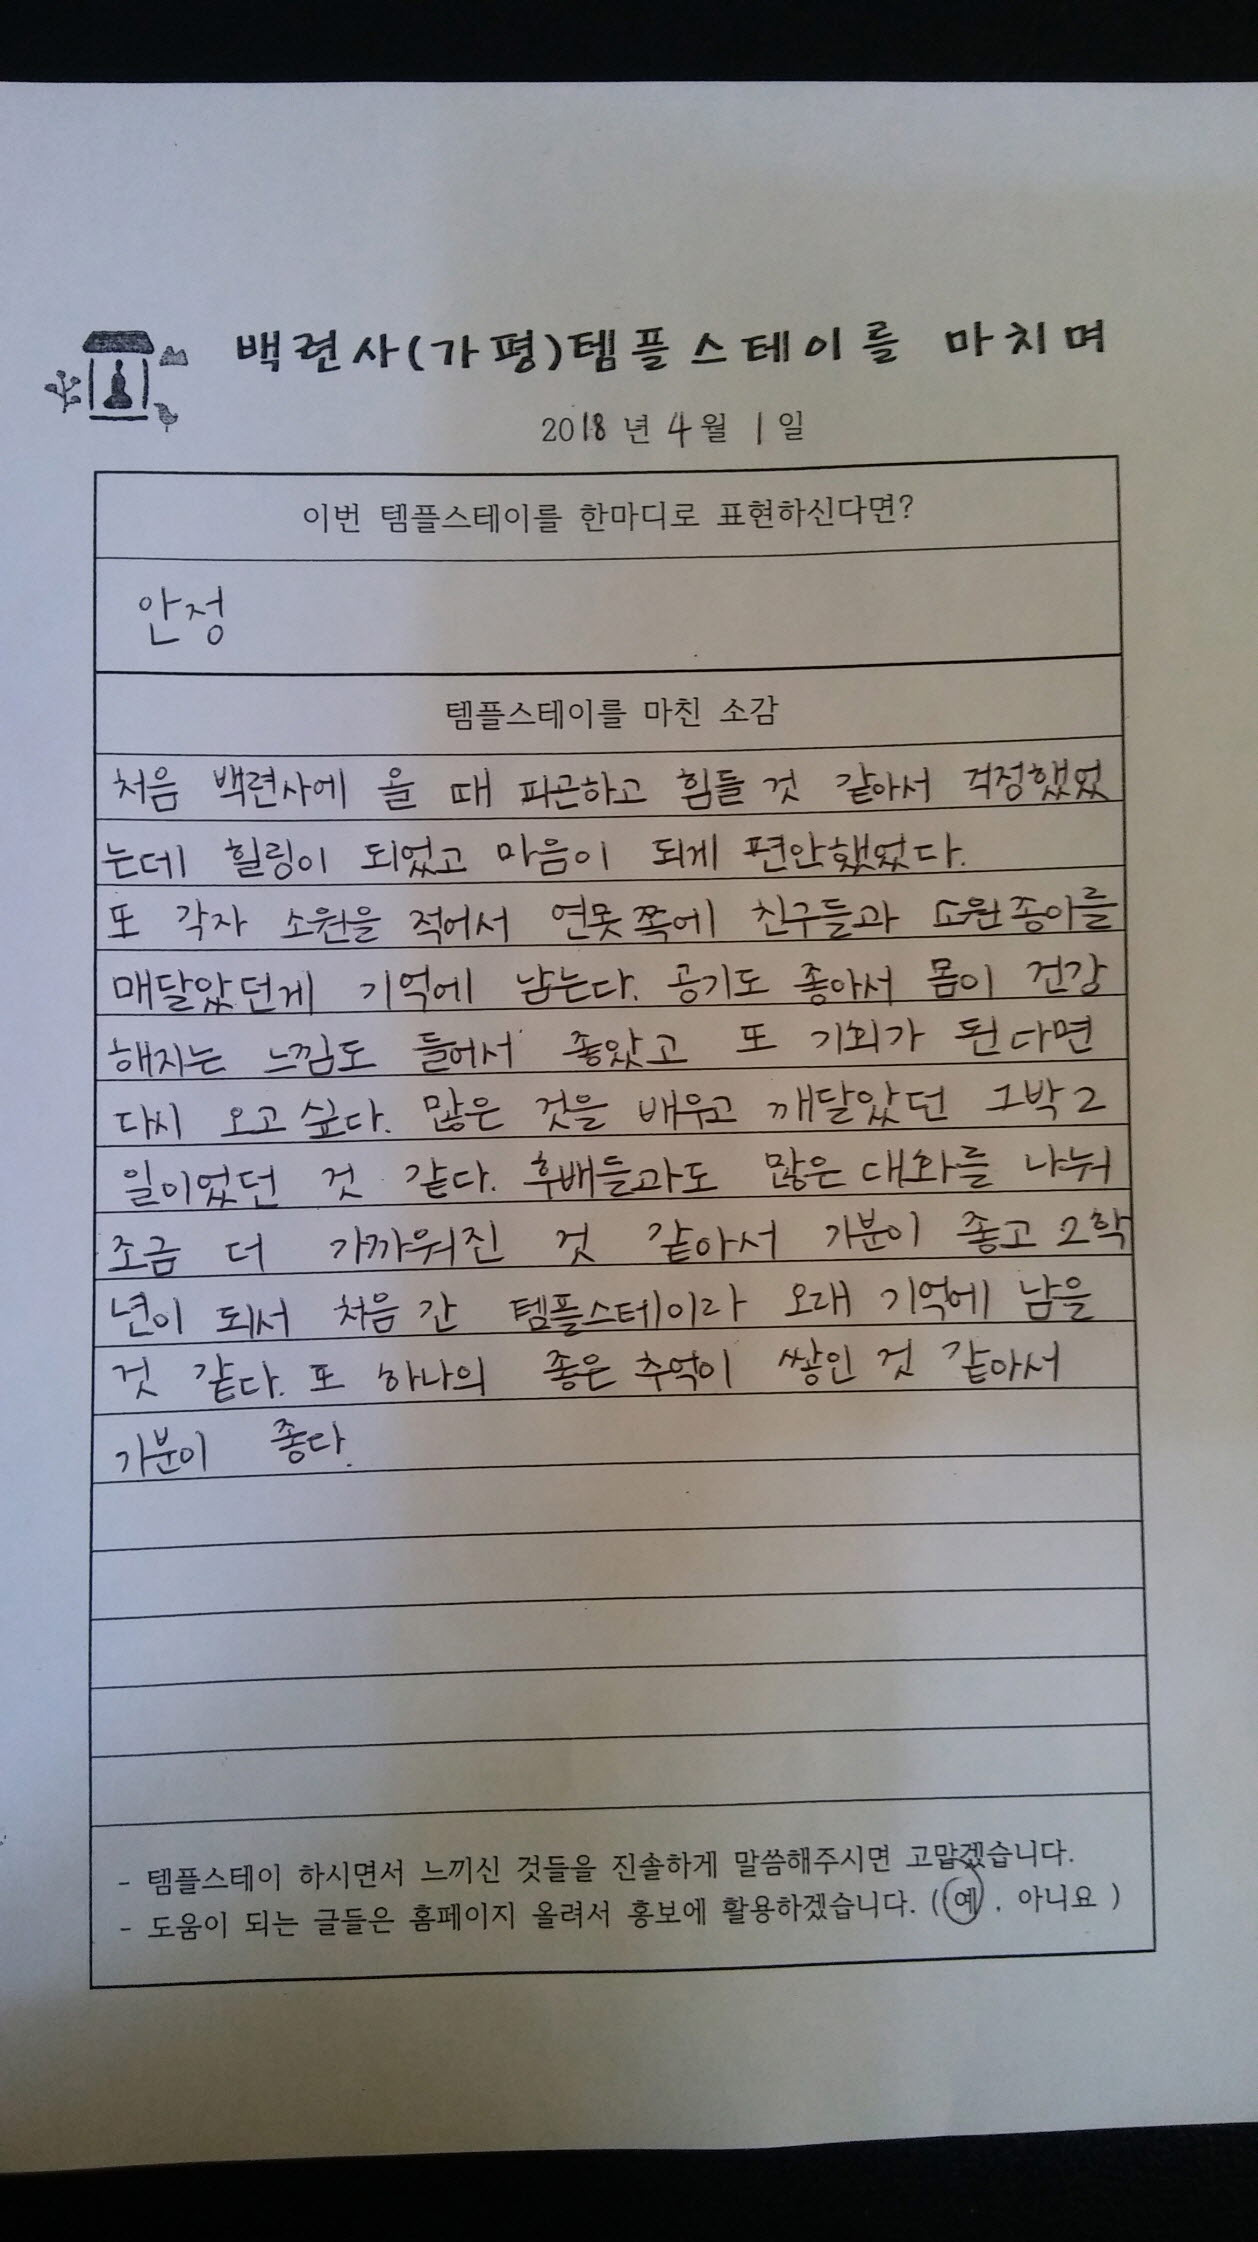 백련사(가평)템플스테이를 마치며
2018 년 4 월 1 일
이번 템플스테이를 한마디로 표현하신다면?
안정
템플스테이를 마친 소감
처음 백련사에 올 때 피곤하고 힘들 것 같아서 걱정했었
는데 힐링이 되었고 마음이 되게 편안했었다.
또 각자 소원을 적어서 연못쪽에 친구들과 소원종이를
매달았던게 기억에 남는다. 공기도 좋아서 몸이 건강
해지는 느낌도 들어서 좋았고 또 기회가 된다면
다시 오고싶다. 많은 것을 배우고 깨달았던 1박2
일이었던 것 같다. 후배들과도 많은 대화를 나눠
조금 더 가까워진 것 같아서 기분이 좋고 2학
년이 되서 처음 간 템플스테이라 오래 기억에 남을
것 같다. 또 하나의 좋은 추억이 쌓인 것 같아서
기분이 좋다.
- 템플스테이 하시면서 느끼신 것들을 진솔하게 말씀해주시면 고맙겠습니다.
- 도움이 되는 글들은 홈페이지 올려서 홍보에 활용하겠습니다. (예 . 아니요 )